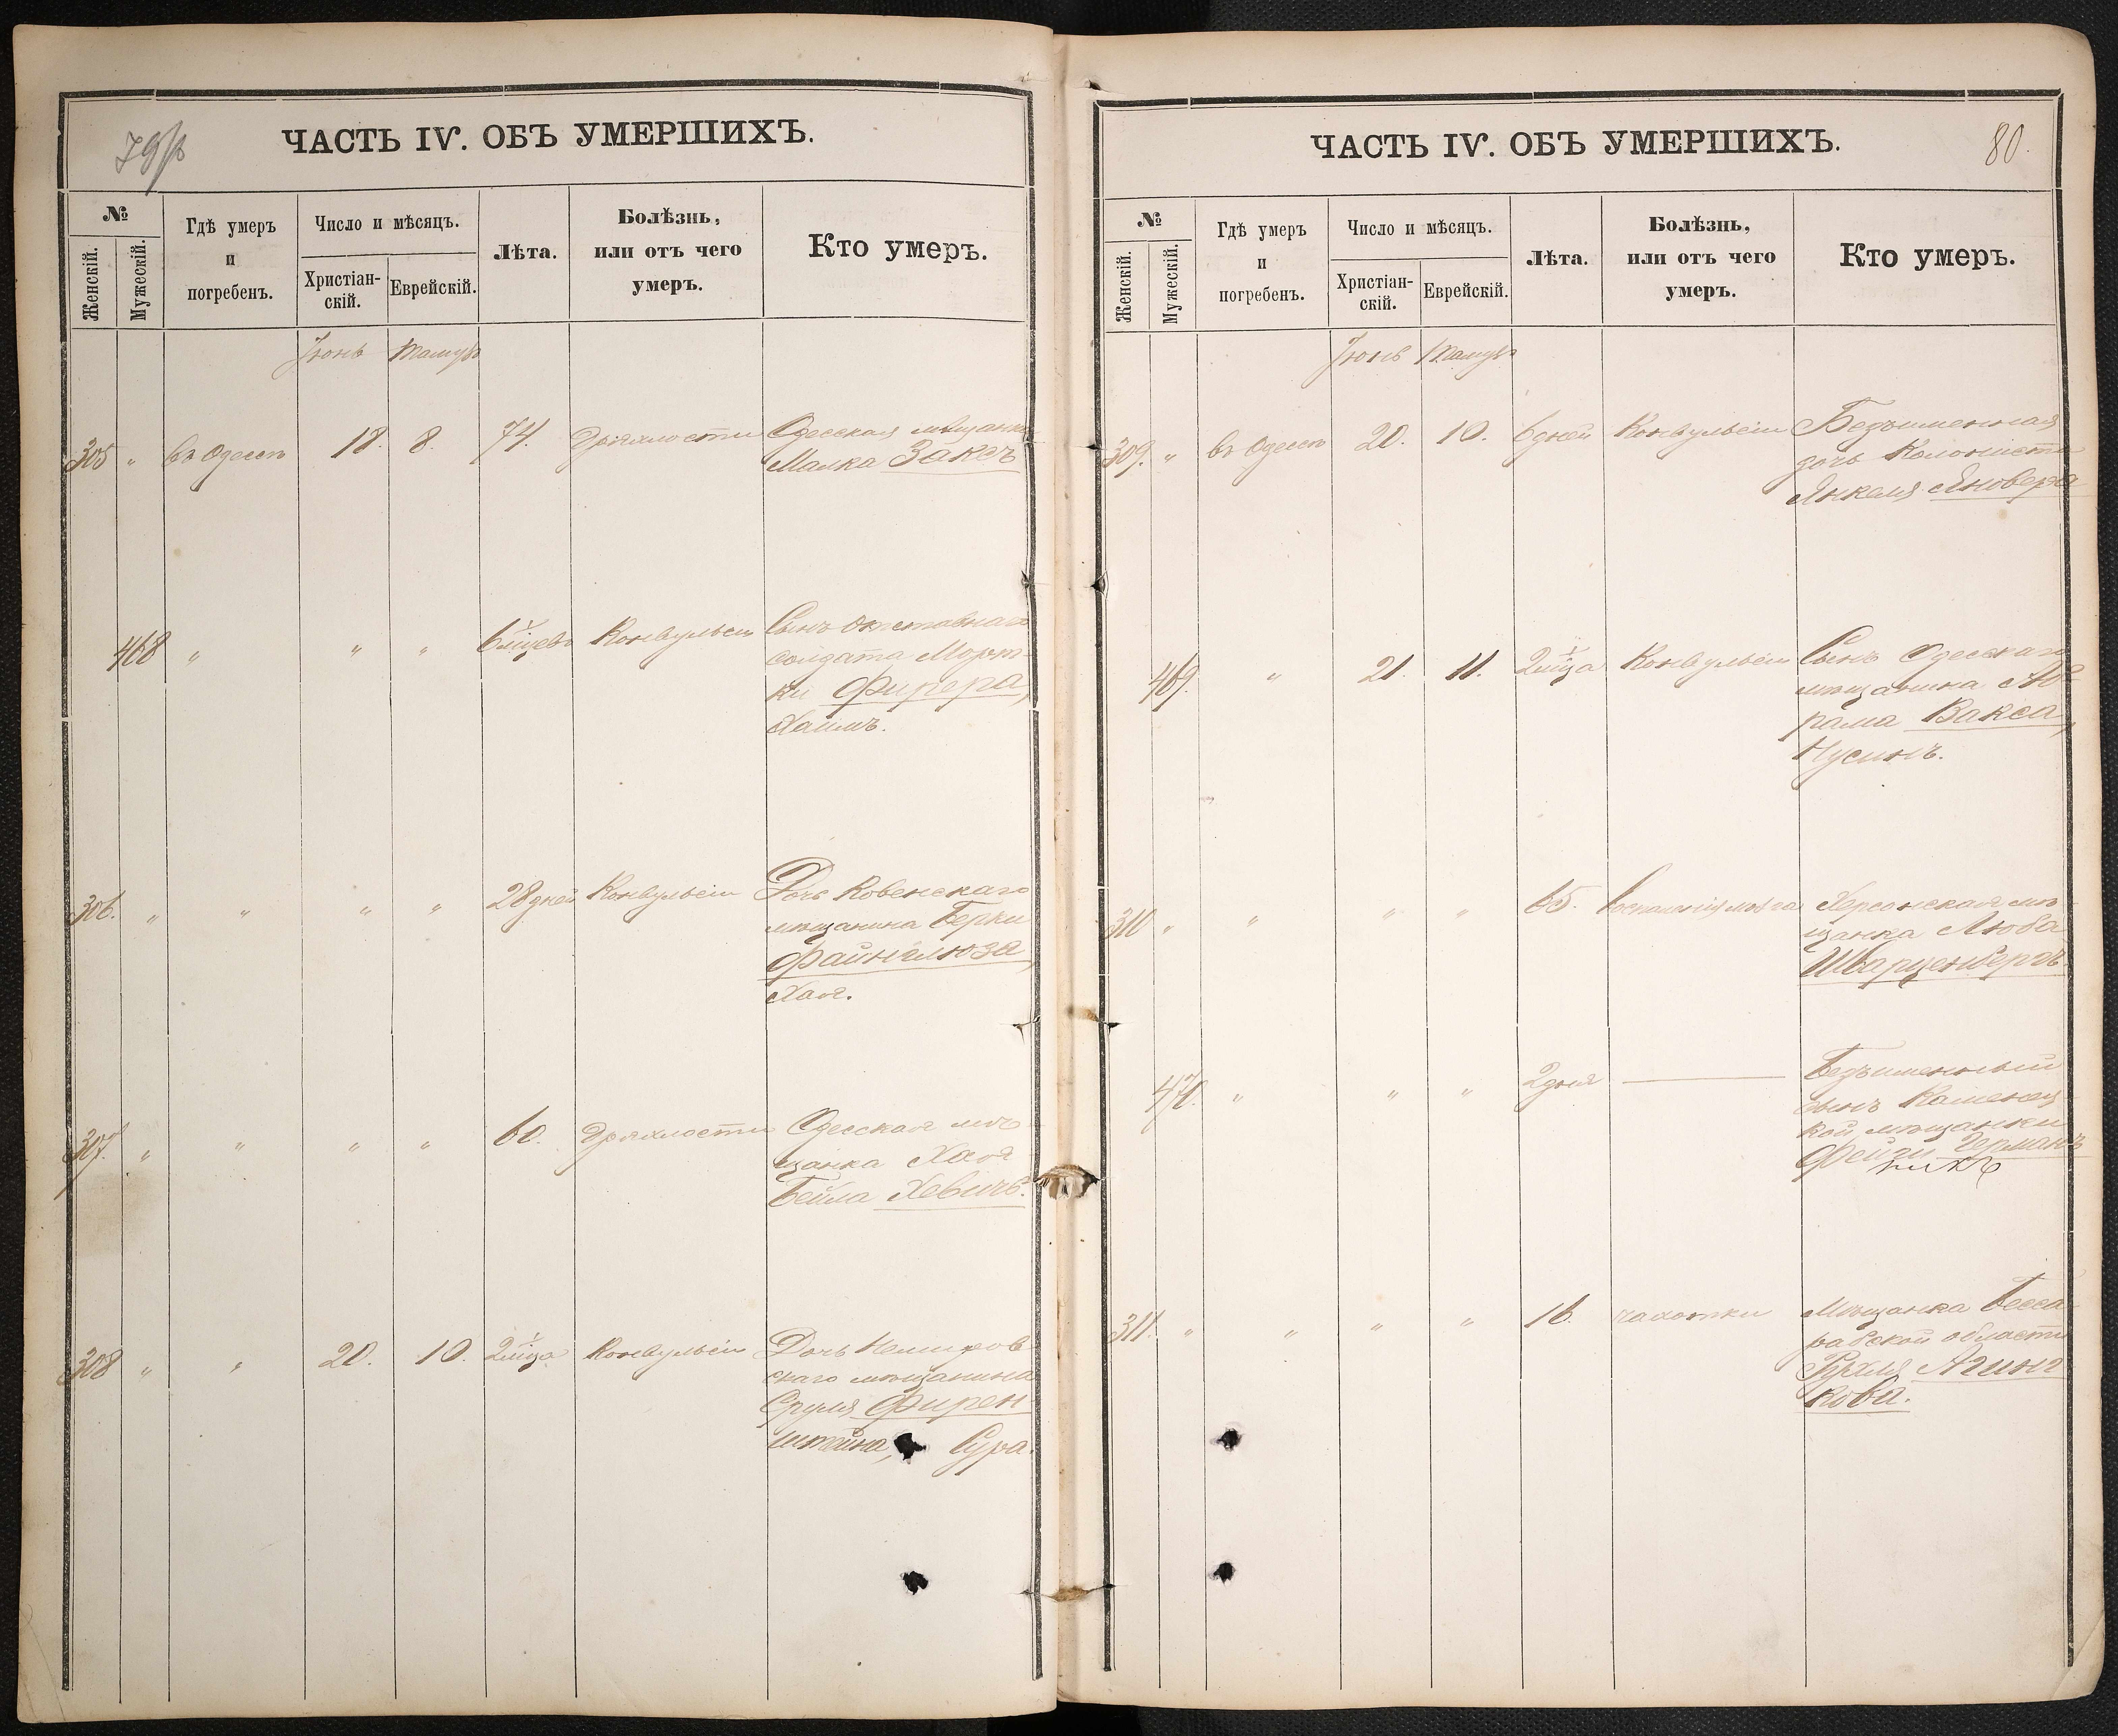 ЧАСТЬ IV. ОБЪ УМЕРШИХЪ.
№
Женскій.
Мужескій.
Гдѣ умеръ
и
погребенъ.
Число и мѣсяцъ.
Христіан-
скій.
Еврейскій.
Лѣта.
Болѣзнь,
или отъ чего
умеръ.
Кто умеръ.
Іюнь Тамузъ
305 " въ Одессѣ 18. 8. 74. Дряхлости Одесская мѣщанка
Малка Заксъ
468 " " " 6 м-цевъ Конвульсіи Сынъ отставнаго
солдата Морт-
ки Фирера,
Хаимъ.
306. " " " " 28 дней Конвульсіи Дочь Ковенскаго
мѣщанина Берки
Файнглюза,
Хая.
307. " " " " 60. Дряхлости Одесская мѣ-
щанка Хая
Бейла Хевичъ.
308 " " 20. 10. 2 м-ца Конвульсіи Дочь Немиров-
скаго мѣщанина
Сруля Фирен-
штейна, Сура.
ЧАСТЬ IV. ОБЪ УМЕРШИХЪ.
80.
№
Женскій.
Мужескій.
Гдѣ умеръ
и
погребенъ.
Число и мѣсяцъ.
Христіан-
скій.
Еврейскій.
Лѣта.
Болѣзнь,
или отъ чего
умеръ.
Кто умеръ.
Іюнь Тамузъ
309. " въ Одессѣ 20. 10. 6 дней Конвульсіи Безъименная
дочь Колониста
Янкеля Яновера
469. " 21. 11. 2 м-ца Конвульсіи Сынъ Одесскаго
мѣщанина Аб-
рама Вакса,
Нусинъ.
310 " " " " 65. Воспаленія мозга Херсонская мѣ-
щанка Люба
Шварценбергъ.
470. " " " 2 дня — Безъименный
сынъ Каменец-
кой мѣщанки
Фейги Герман
никъ
311. " " " " 16. чахотки Мѣщанка Бесса-
рабской области
Рухля Агин-
кова.